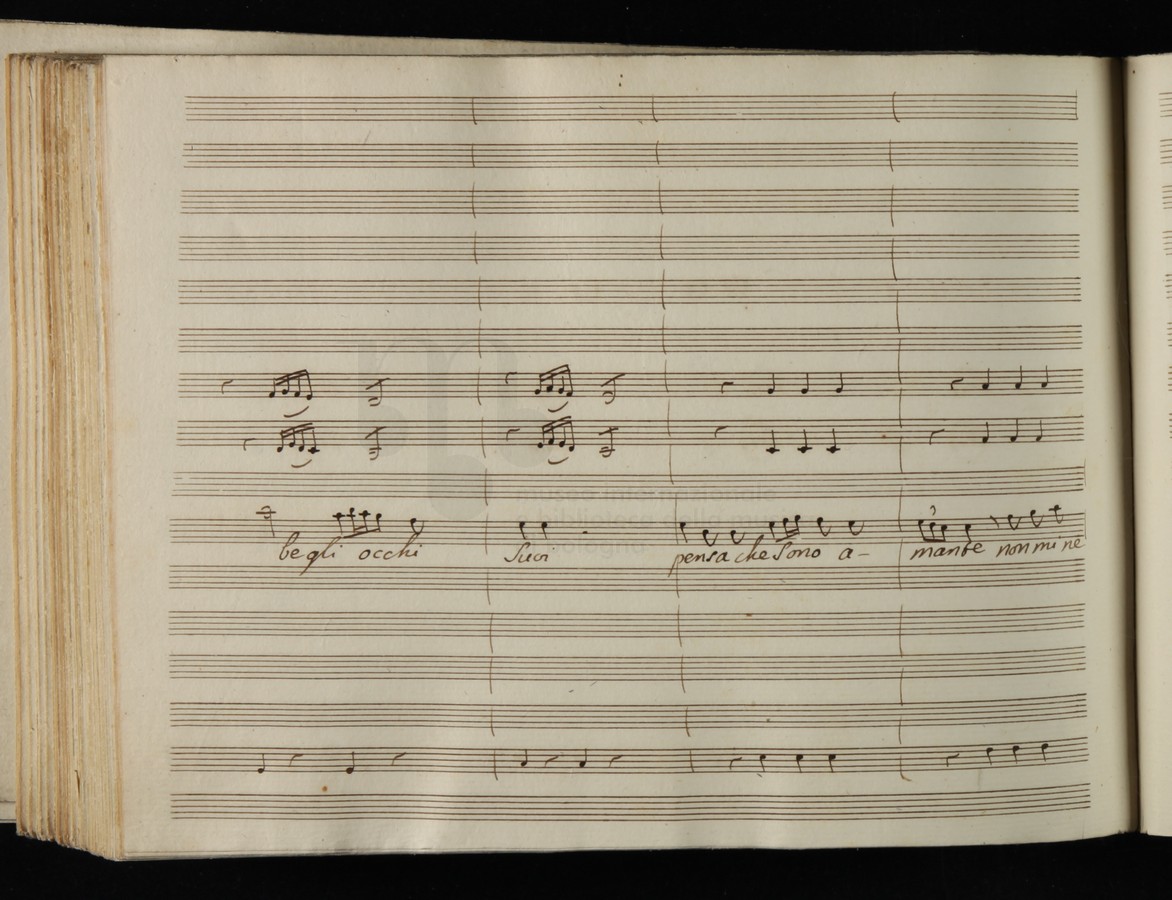 museo internazionale
e biblioteca della musica
bologna
begli occhi suoi pensa che sono a- mante non mi ne